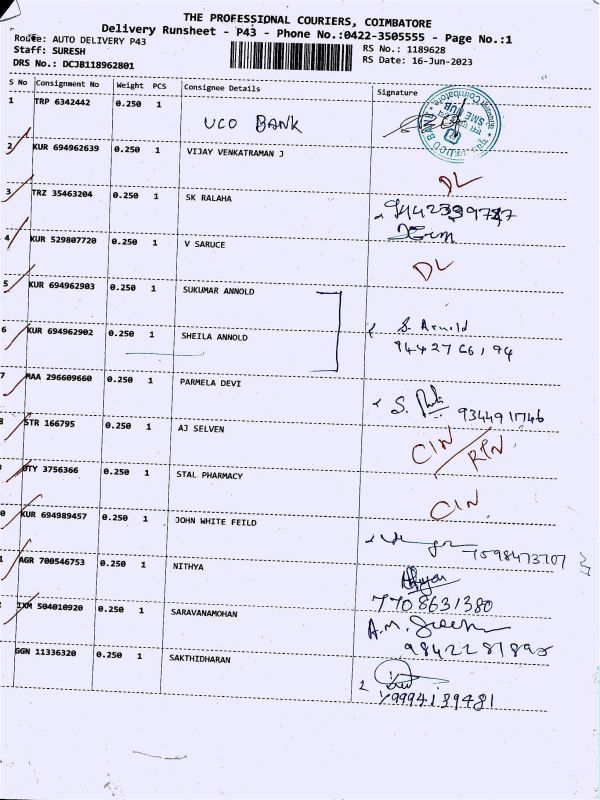 THE PROFESSIONAL COURIERS, COIMBATORE
Delivery Runsheet - P43 - Phone No.:0422-3505555 - Page No.:1
Route: AUTO DELIVERY P43
RS No.: 1189628
Staff: SURESH
RS Date: 16-Jun-2023
DRS No.: DCJB118962801
S No Consignment No Weight PCS Consignee Details Signature
1 TRP 6342442 0.250 1
UCO BANK
2 KUR 694962639 0.250 1 VIJAY VENKATRAMAN J
DL
3 TRZ 35463204 0.250 1 SK RALAHA
4 KUR 529807720 0.250 1 V SARUCE
DL
5 KUR 694962903 0.250 1 SUKUMAR ANNOLD
6 KUR 694962902 0.250 1 SHEILA ANNOLD
S. Arnold
94427 66194
7 MAA 296609660 0.250 1 PARMELA DEVI
9344917746
8 STR 166795 0.250 1 AJ SELVEN
CIN / RTN
OTY 3756366 0.250 1 STAL PHARMACY
CIN
0 KUR 694989457 0.250 1 JOHN WHITE FEILD
7598473707
1 AGR 700546753 0.250 1 NITHYA
7708631380
2 IXM 504010920 0.250 1 SARAVANAMOHAN
A.M.
GGN 11336320 0.250 1 SAKTHIDHARAN
9994139481